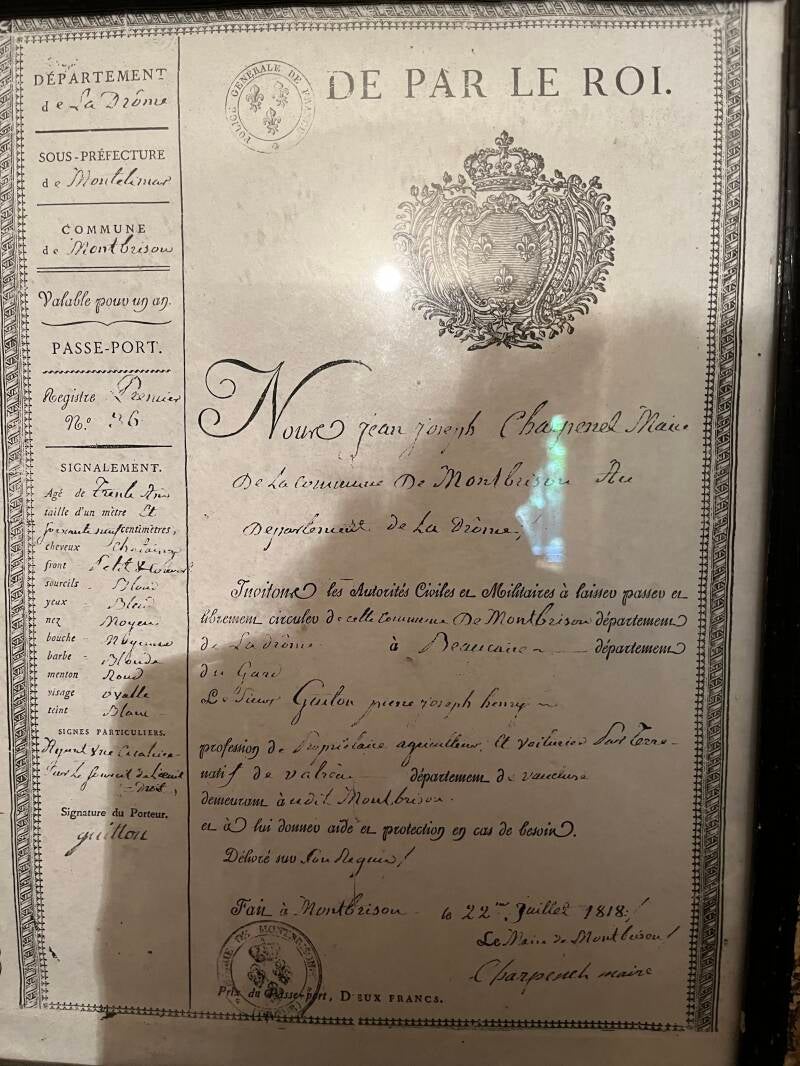 DÉPARTEMENT
de La Drôme
SOUS-PRÉFECTURE
de Montelimar
COMMUNE
de Montbrison
Valable pour un an.
PASSE-PORT.
Registre Premier
N.º 36
SIGNALEMENT.
Agé de Trente Ans
taille d'un mètre Et
soixante neuf centimètres,
cheveux Chatains
front Petit &
sourcils Blond
yeux Bleu
nez Moyen
bouche Moyenne
barbe Blonde
menton Rond
visage ovalle
teint Blanc
SIGNES PARTICULIERS.
Ayant une Cicatrice
Sur Le
Droit,
Signature du Porteur.
guillon
POLICE GÉNÉRALE DE FRANCE
DE PAR LE ROI.
Nous jean joseph Charpenel Maire
De La commune De Montbrison Au
Departement de La Drôme,
Invitons les Autorités Civiles et Militaires à laisser passer et
librement circuler de cette Commune De Montbrison département
de La drôme à Beaucaire département
du Gard
Le Sieur pierre joseph henry
profession de Propriétaire agriculteur, Et voiturier Par Terre
natif de valréas département de vaucluse
demeurant à udit Montbrison.
et à lui donner aide et protection en cas de besoin.
Délivré sur Son Requis
Fait à Montbrison le 22me Juillet 1818
Le Maire de Montbrison
Charpenel maire
Prix du Passe-port, DEUX FRANCS.